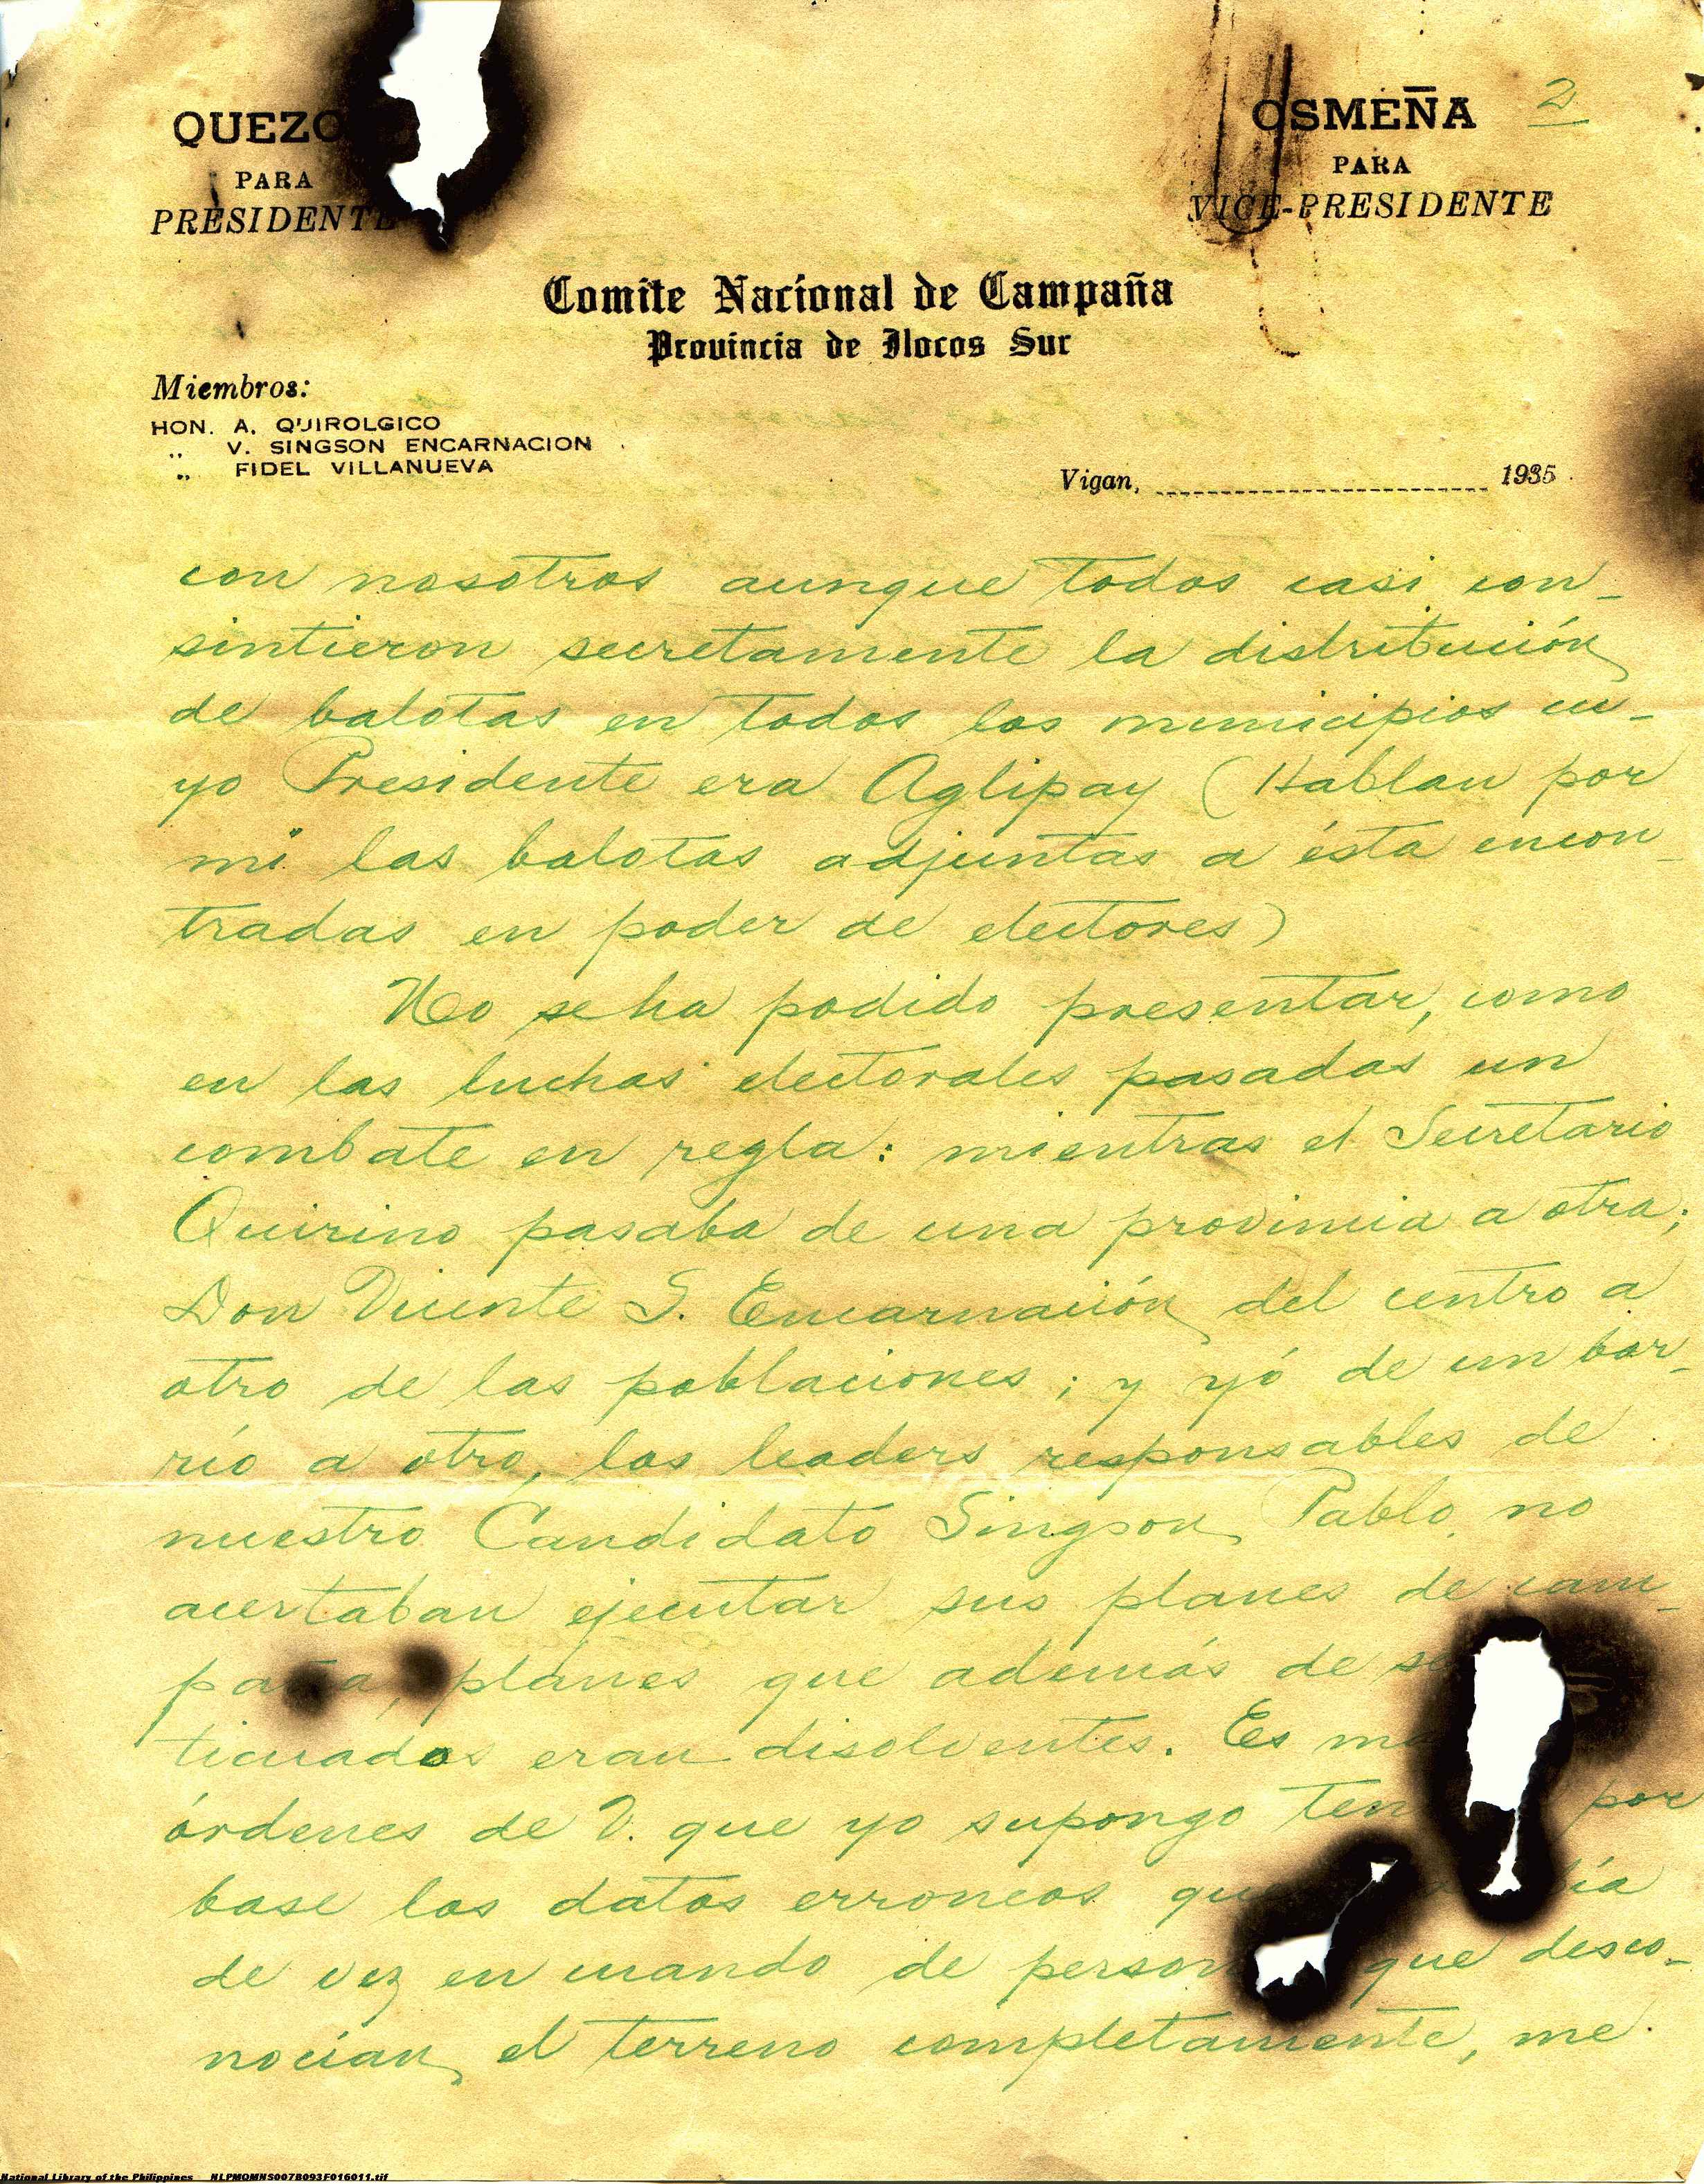 QUEZO
PARA
PRESIDENTE
OSMEÑA
2
PARA
VICE-PRESIDENTE
Comite Nacional de Campaña
Provincia de Ilocos Sur
Miembros:
HON. A. QUIROLGICO
„ V. SINGSON ENCARNACION
„ FIDEL VILLANUEVA
Vigan, 1935
con nosotros aunque todos casi con-
sintieron secretamente la distribución
de balotas en todos los municipios cu-
yo Presidente era Aglipay (Hablan por
mi las balotas adjuntas a ésta encon-
tradas en poder de electores)
No se ha podido presentar, como
en las luchas electorales pasadas un
combate en regla: mientras el Secretario
Quirino pasaba de una provincia a otra;
Don Vicente S. Encarnación del centro a
otro de las poblaciones; y yó de un bar-
rio a otro, los leaders responsables de
nuestro Candidato Singson Pablo no
acertaban ejecutar sus planes de cam-
paña, planes que además de
ticuados eran disolventes. Es
órdenes de V. que yo supongo por
base los datos erroneos
de vez en cuando de que desco-
nocian el terreno completamente, me
National Library of the Philippines NLPMQMNS007B093F016011.tif